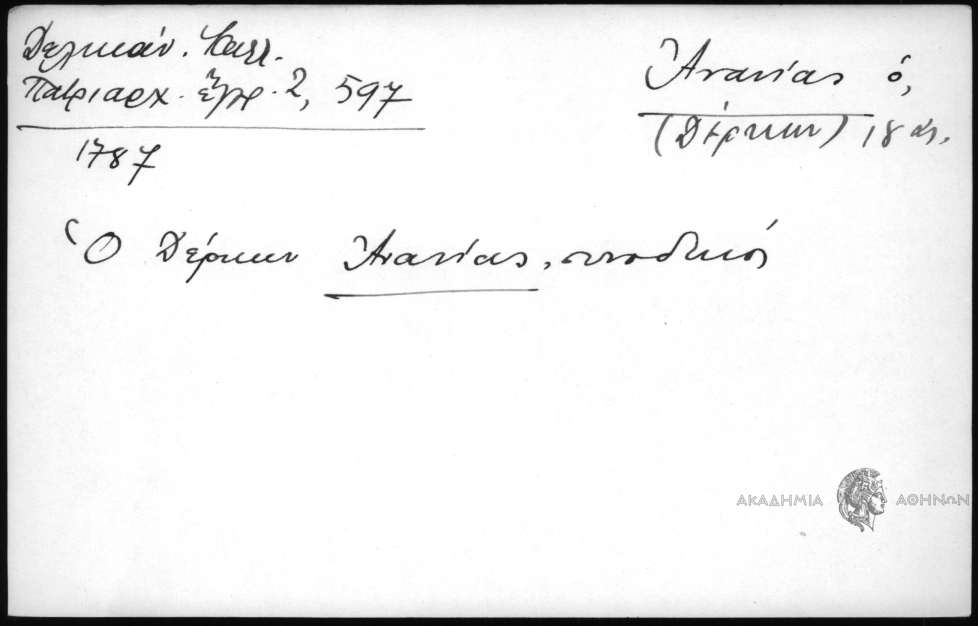 Δελικάν. Καλλ.
Πατριαρχ. ἔγγρ. 2, 597
1787
Ἀνανίας ὁ,
(Δέρκων) 18 αἰ.
Ὁ Δέρκων Ἀνανίας, συνοδικός
ΑΚΑΔΗΜΙΑ ΑΘΗΝΩΝ